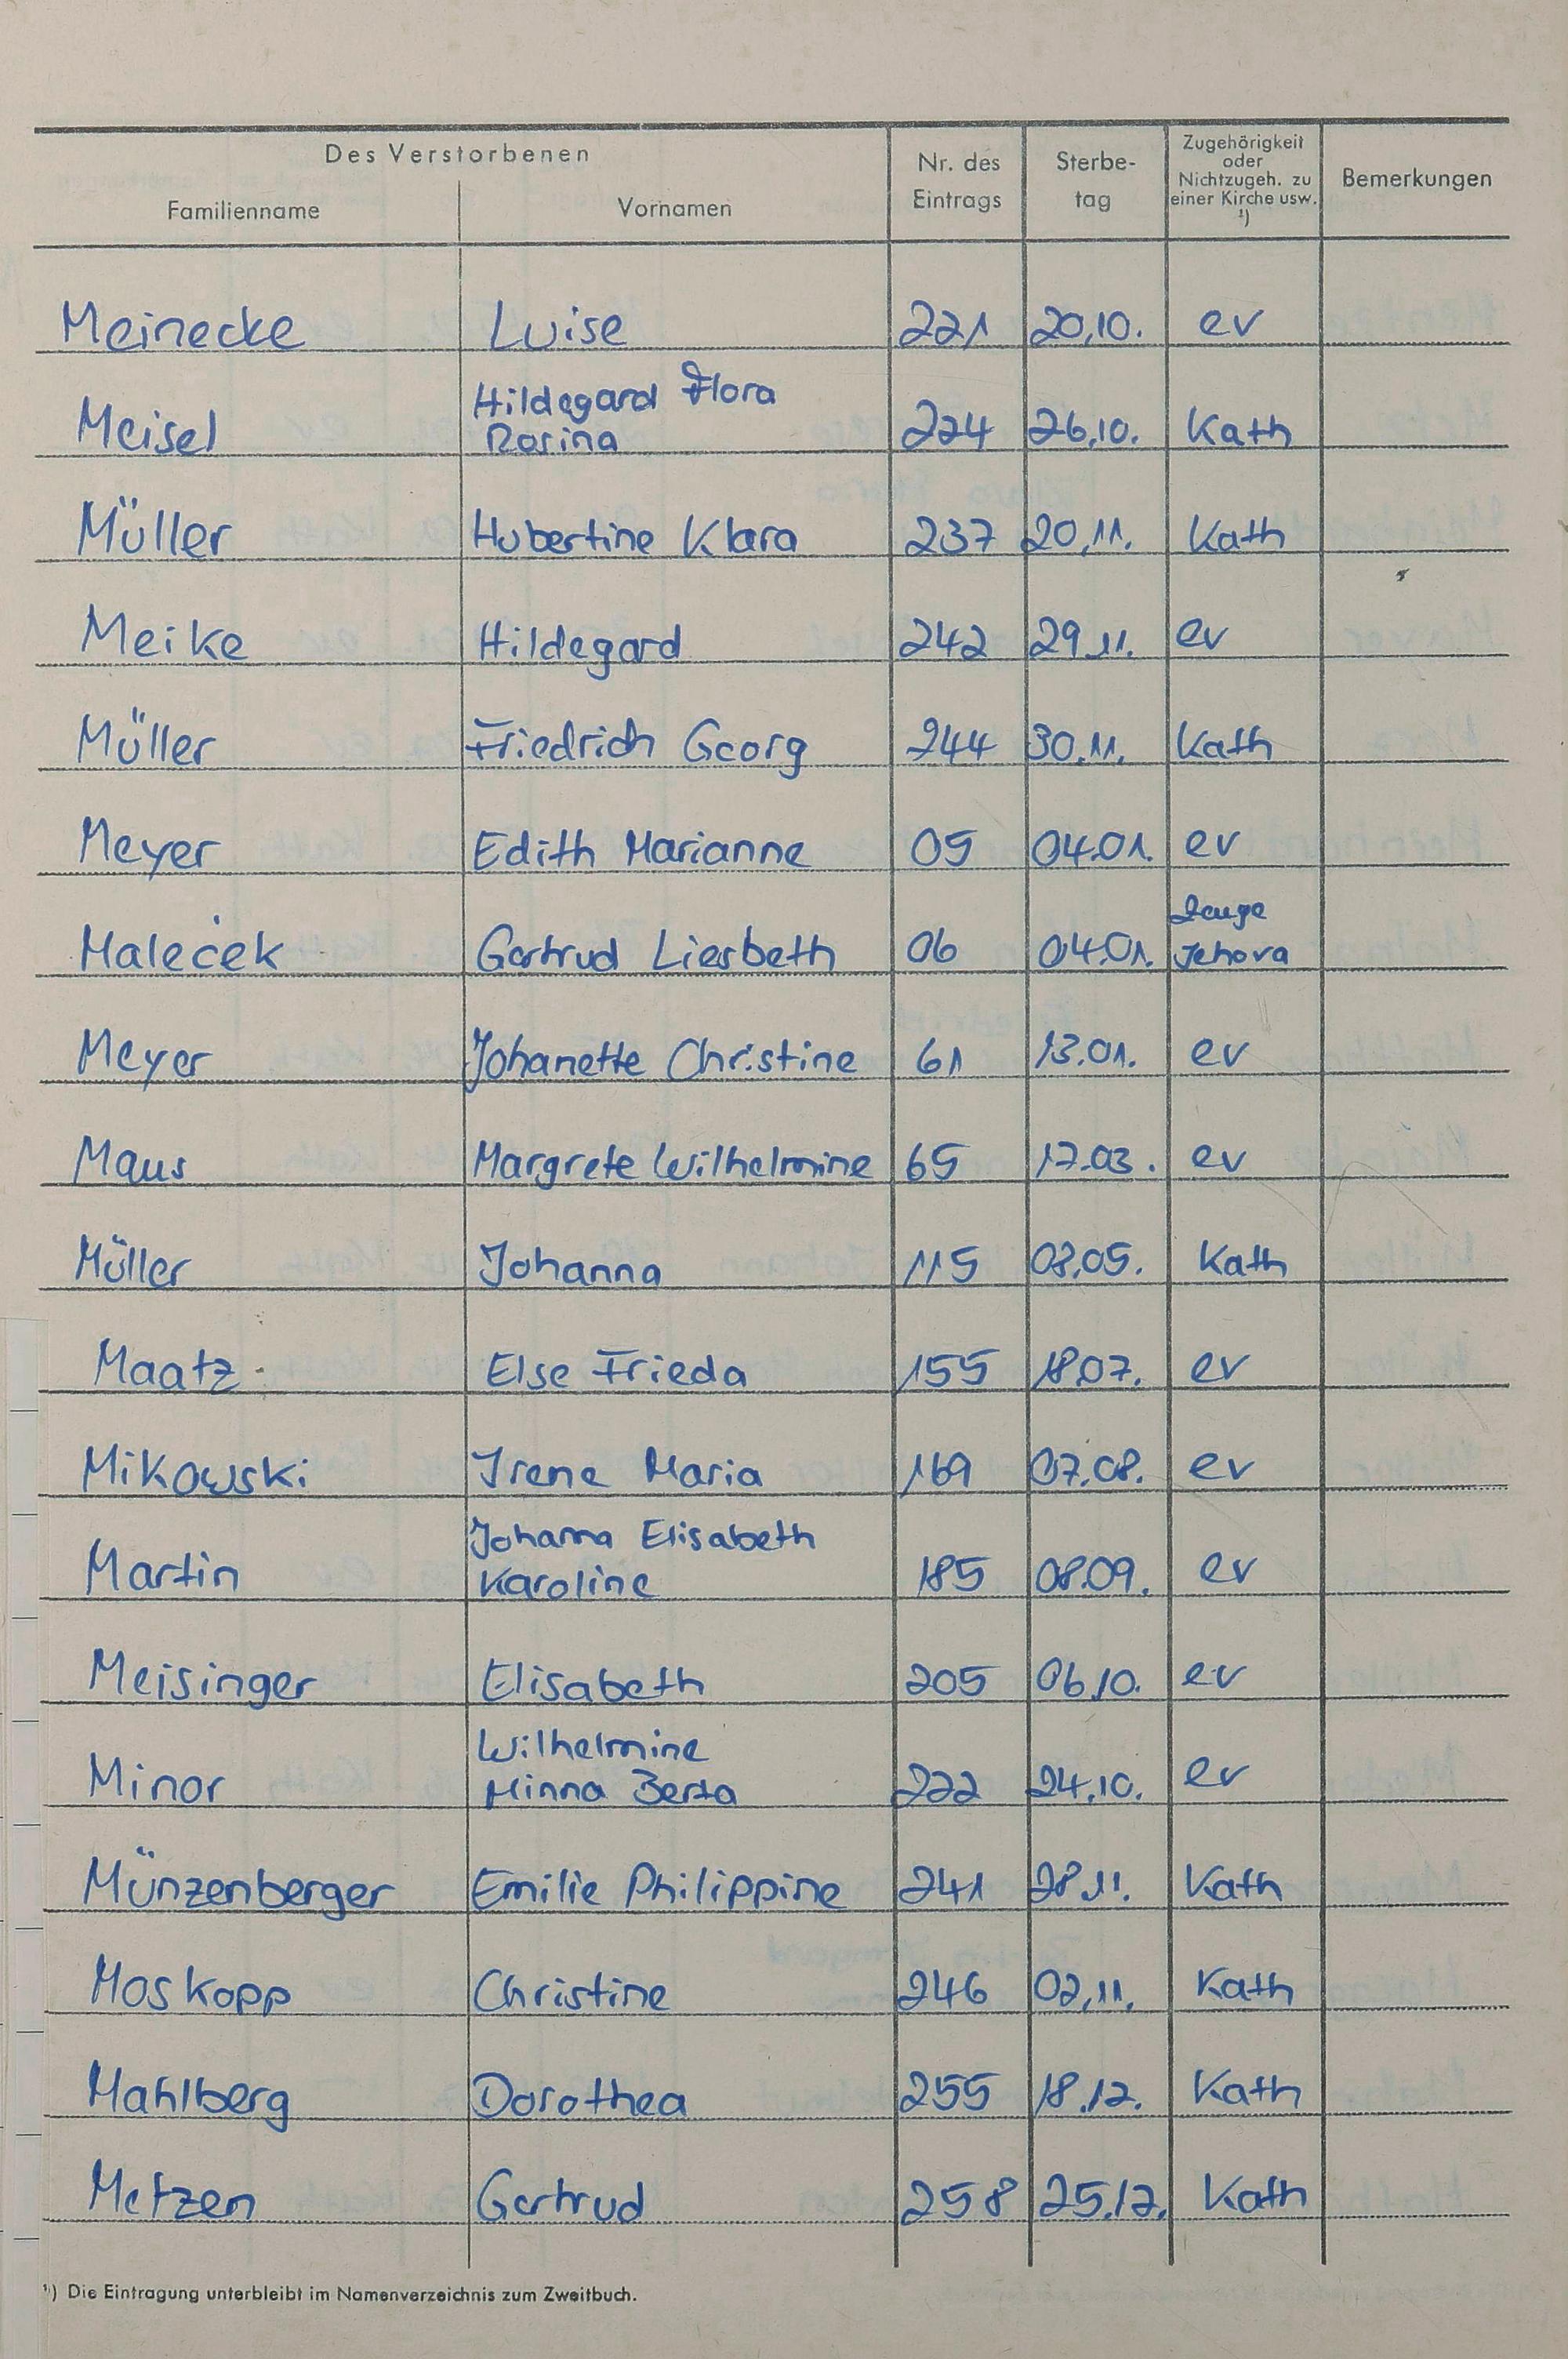 Des Verstorbenen
Familienname Vornamen Nr. des Eintrags Sterbe-tag Zugehörigkeit oder Nichtzugeh. zu einer Kirche usw. ¹) Bemerkungen
Meinecke Luise 221 20.10. ev
Hildegard Flora
Meisel Rosina 224 26.10. Kath
Müller Hubertine Klara 237 20.11. Kath
Meike Hildegard 242 29.11. ev
Müller Friedrich Georg 244 30.11. Kath
Meyer Edith Marianne 05 04.01. ev
Zeuge
Maleček Gertrud Liesbeth 06 04.01. Jehova
Meyer Johanette Christine 61 13.01. ev
Maus Margrete Wilhelmine 65 17.03. ev
Müller Johanna 115 08.05. Kath
Maatz Else Frieda 155 18.07. ev
Mikowski Irene Maria 169 07.08. ev
Johanna Elisabeth
Martin Karoline 185 08.09. ev
Meisinger Elisabeth 205 06.10. ev
Wilhelmine
Minor Minna Berta 222 24.10. ev
Münzenberger Emilie Philippine 241 28.11. Kath
Moskopp Christine 246 02.11. Kath
Mahlberg Dorothea 255 18.12. Kath
Metzen Gertrud 258 25.12. Kath
¹) Die Eintragung unterbleibt im Namenverzeichnis zum Zweitbuch.